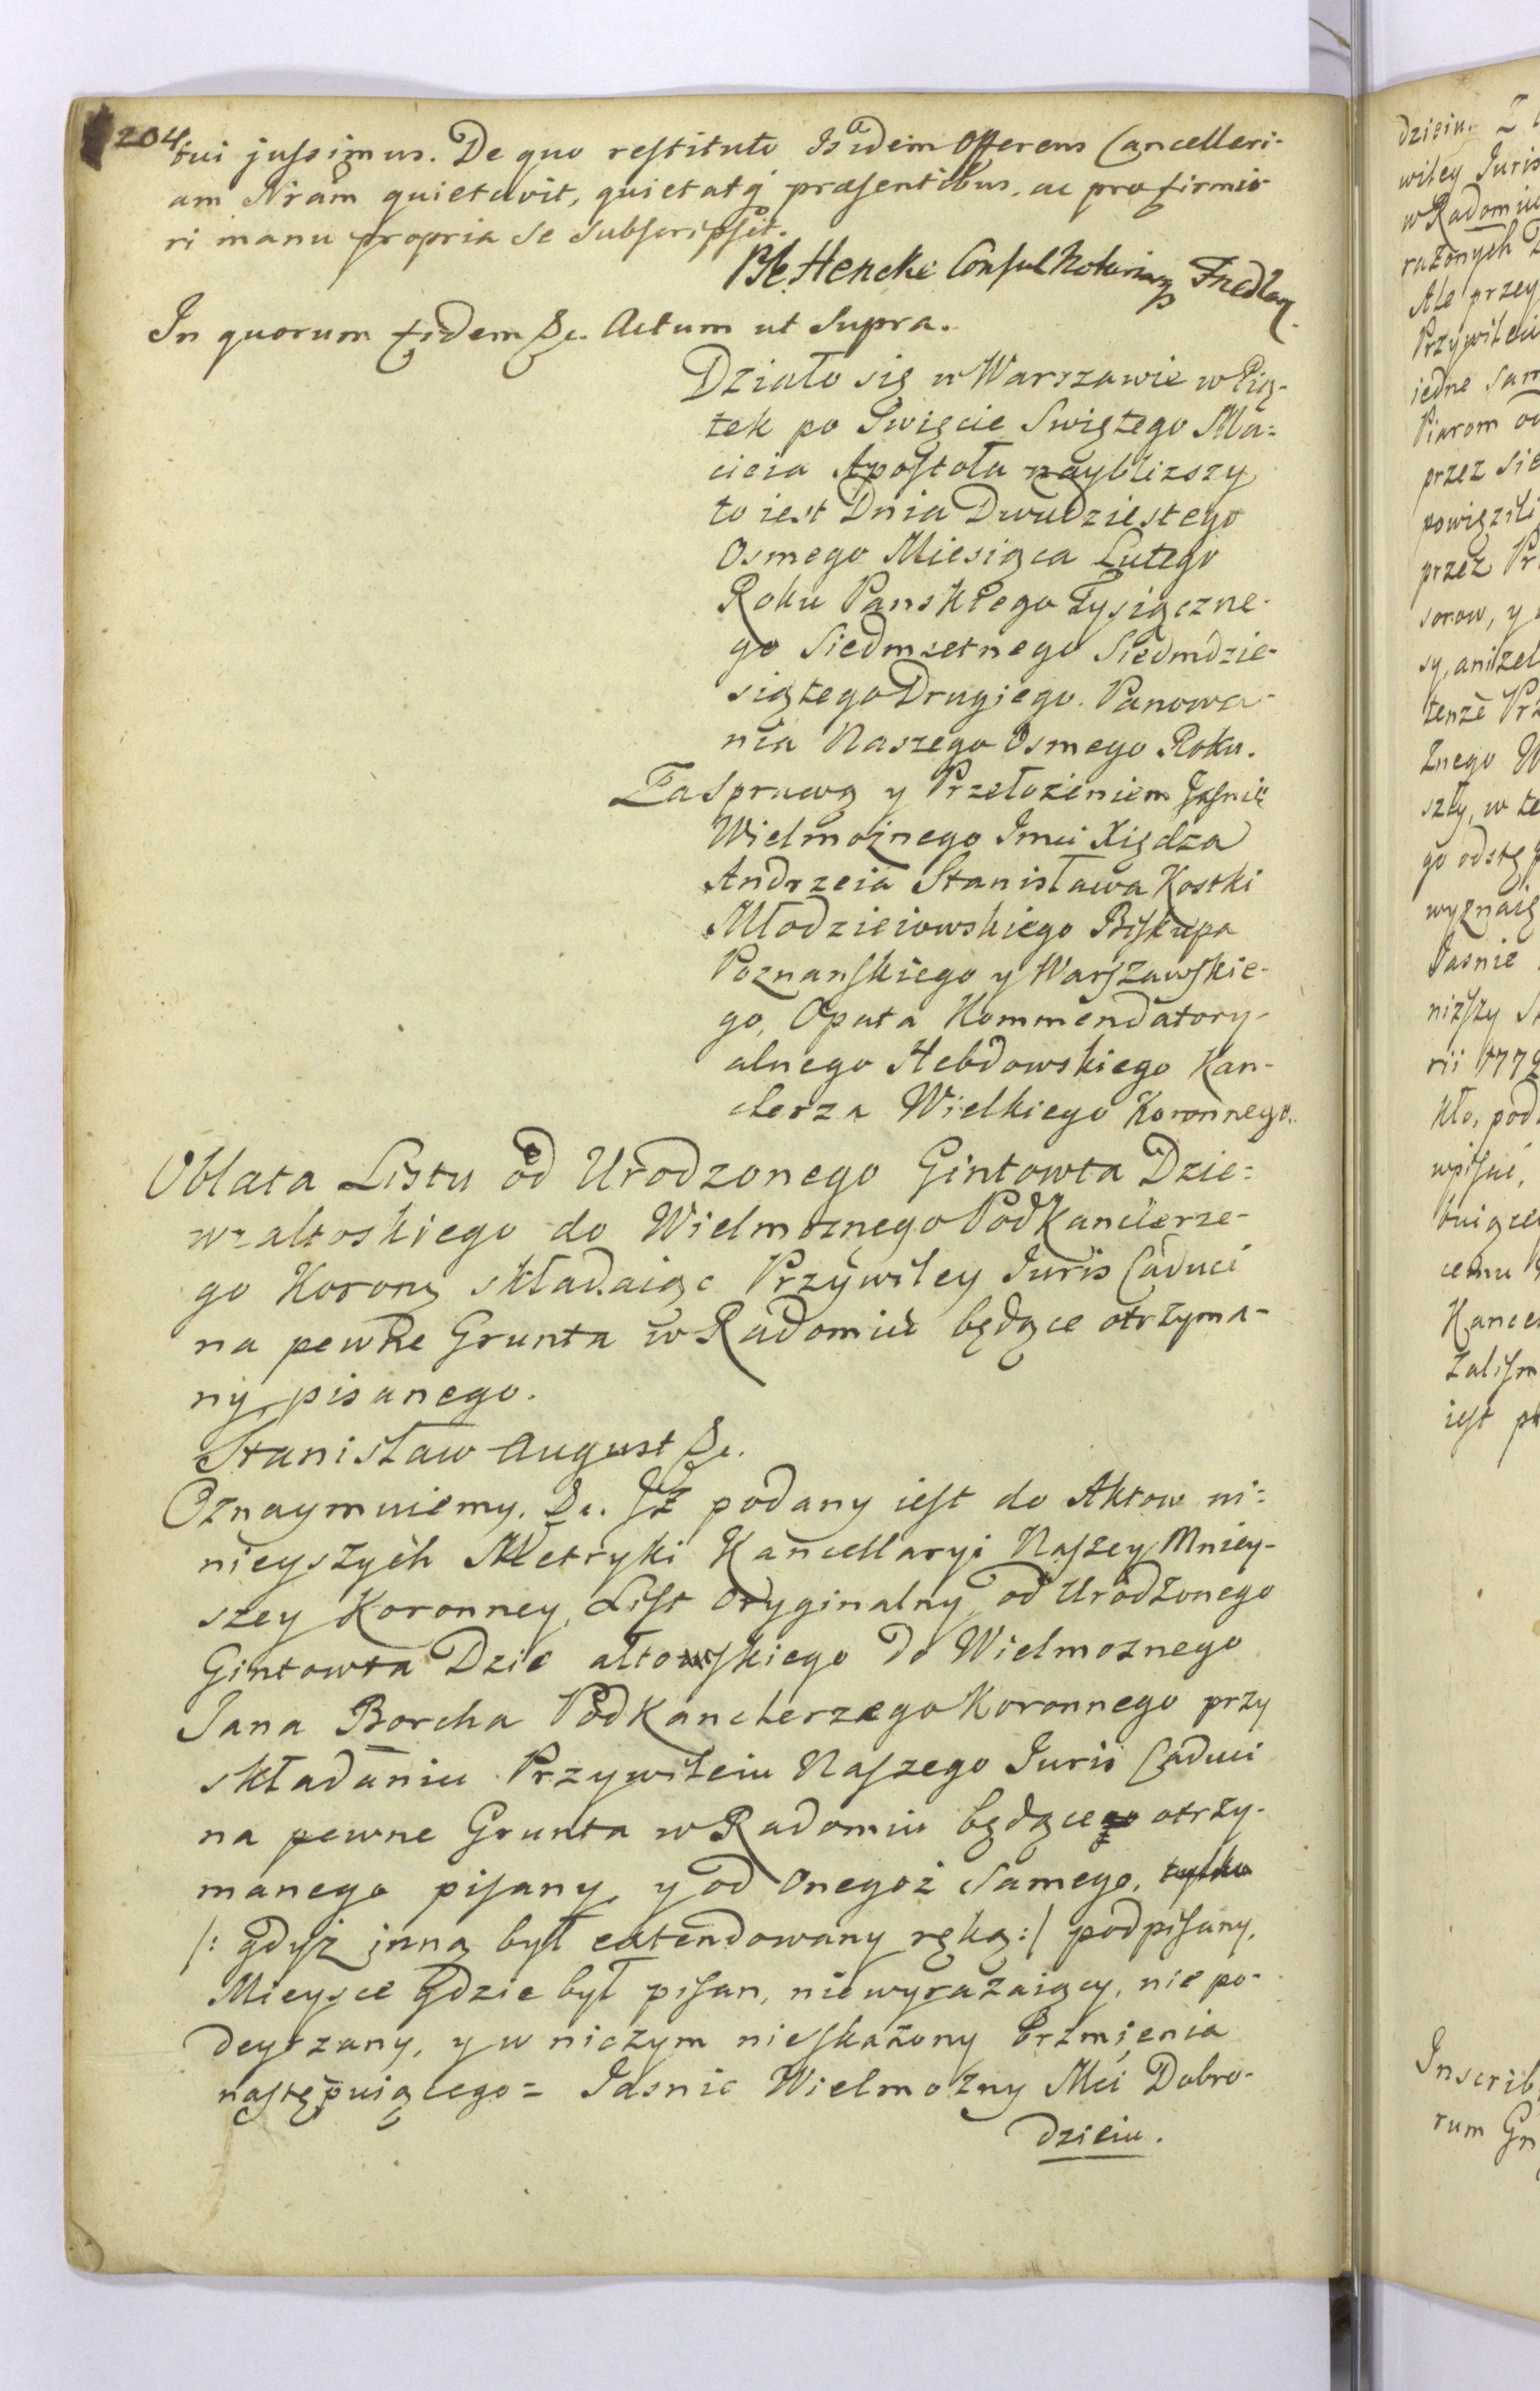 204
tui jussimus. De quo restituto Isdem Offerens Cancelleri-
am Nram quietavit, quietatq praesentibus, ac pro firmio
ri manu propria se subscripsit.
Hencke Consul Notarius
In quorum fidem &c. Actum ut Supra.
Działo się w Warszawie w Pią-
tek po Swięcie Swiętego Ma-
cieia Apostoła naybliższy
to iest Dnia Dwudziestego
Osmego Miesiąca Lutego
Roku Panskiego Tysiączne-
go Siedmsetnego Siedmdzie-
siątego Drugiego. Panowa-
nia Naszego Osmego Roku.
Za Sprawą y Przełożeniem Jaśnie
Wielmożnego Imci Xiędza
Andrzeia Stanisława Kostki
Młodzieiowskiego Biskupa
Poznanskiego y Warszawskie-
go, Opata Kommendatory-
alnego Hebdowskiego Kan-
clerza Wielkiego Koronnego.
Oblata Listu od Urodzonego Gintowta Dzie-
wałtoskiego do Wielmoznego Podkanclerze-
go Korony składaiąc Przywiley Juris Caduci
na pewne Grunta w Radomiu będące otrzyma-
ny pisanego.
Stanisław August &c.
Oznaymuiemy. &c. Iż podany iest do Aktow ni-
nieyszych Metryki Kancellaryi Naszey Mniey-
szey Koronney, List Oryginalny od Urodzonego
Gintowta Dzie ałtowskiego do Wielmoznego
Jana Borcha Podkanclerzego Koronnego przy
składaniu Przywileiu Naszego Juris Caduci
na pewne Grunta w Radomiu będące otrzy-
manego pisany, y od Onegoż samego, tylko
/: gdyż inną był extendowany ręką :/ podpisany,
Mieysce gdzie był pisan, nie wyrażaiący, nie po-
deyrzany, y w niczym nieskażony brzmienia
następuiącego = Jasnie Wielmożny Mci Dobro-
dzieiu.
dzieiu.
wiley Juris
w Radomiu
rażonych
Ale przey
Przywileiu
iedne sam
Piarom od
przez sie
powięzili
przez Pr
sorow, y
sy, aniżel
tenże Prz
żnego W
szły, w te
go odstę
wyznaię
Jasnie
niższy
rii 1772
kło, pod
wpisać,
buiące
cemu
Kance
zalism
iest p
Inscrib
rum Gr